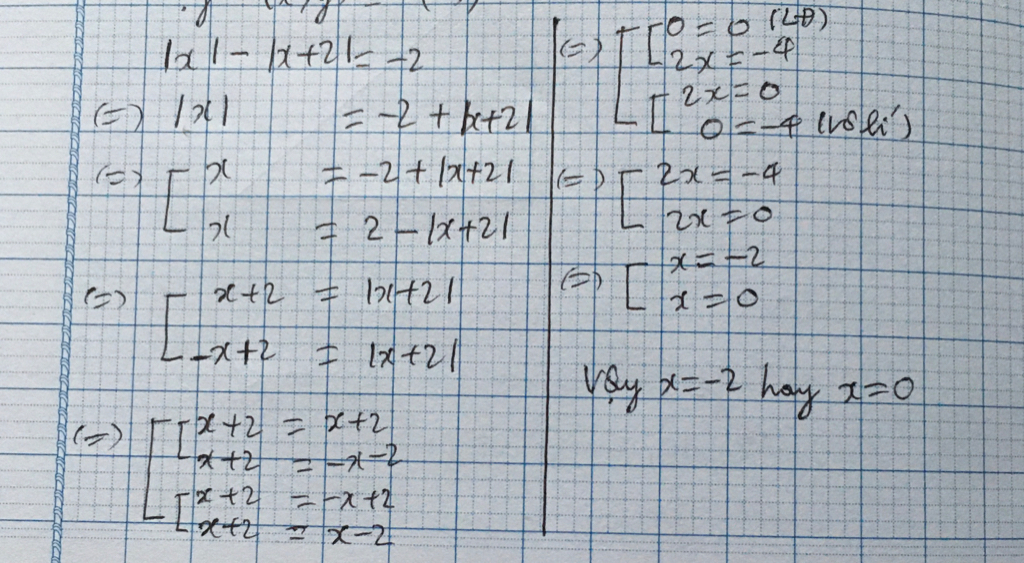 |x| - |x+2| = -2
(=) |x| = -2 + |x+2|
(=) [ x = -2 + |x+2|
x = 2 - |x+2|
(=) [ x+2 = |x+2|
-x+2 = |x+2|
(=) [ [ x+2 = x+2
x+2 = -x-2
[ x+2 = -x+2
x+2 = x-2
(=) [ [ 0 = 0 (LĐ)
2x = -4
[ 2x = 0
0 = -4 (vô lí)
(=) [ 2x = -4
2x = 0
(=) [ x = -2
x = 0
Vậy x = -2 hay x = 0